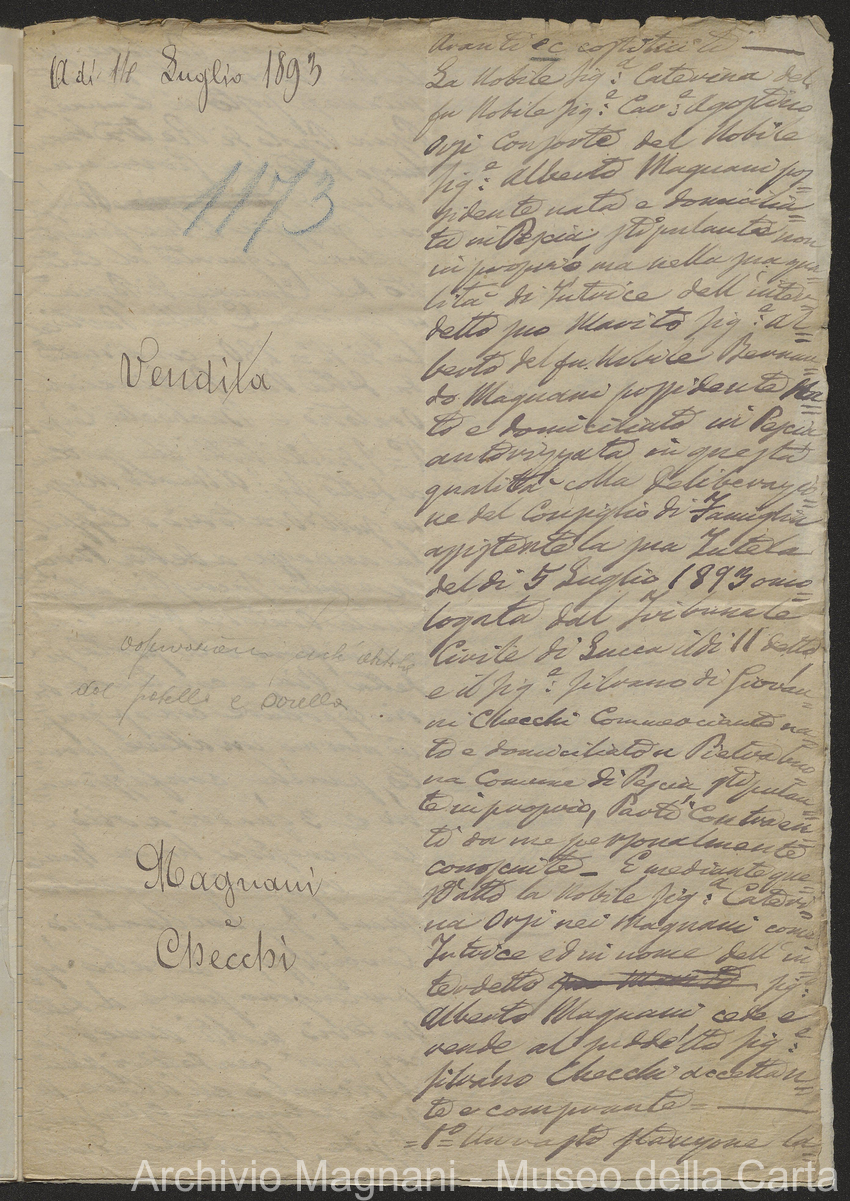 A dì 14 Luglio 1893
1173
Vendita
del fratello e sorella
Magnani
e
Checchi
Avanti ec costituiti
La Nobile Sig.a Caterina del
fu Nobile Sig.e Cav.e Agostino
Orsi Consorte del Nobile
Sig.e Alberto Magnani pos=
sidente nata e domicilia=
ta in Pescia, stipulante non
in proprio, ma nella sua qua=
lità di Tutrice dell'inter=
detto suo Marito Sig.e Al=
berto del fu Nobile Bernar=
do Magnani possidente Na=
to e domiciliato in Pescia
autorizzata in questa
qualità colla deliberazio=
ne del Consiglio di Famiglia
assistente la sua Tutela
del dì 5 Luglio 1893 omo=
logata dal Tribunale
Civile di Lucca il dì 11 detto
e il Sig.e Silvano di Giovan=
ni Checchi Commerciante na=
to e domiciliato a Pietrabuo=
na Comune di Pescia, stipulan=
te in proprio, Parti Contraen=
ti da me personalmente
conosciute_ E mediante que=
st'atto la Nobile Sig.a Cateri=
na Orsi nei Magnani come
Tutrice ed in nome dell'in=
terdetto suo Marito Sig.
Alberto Magnani cede e
vende al suddetto Sig.e
Silvano Checchi accettan=
te e comprante =
=1° Un vasto stanzone la=
Archivio Magnani - Museo della Carta